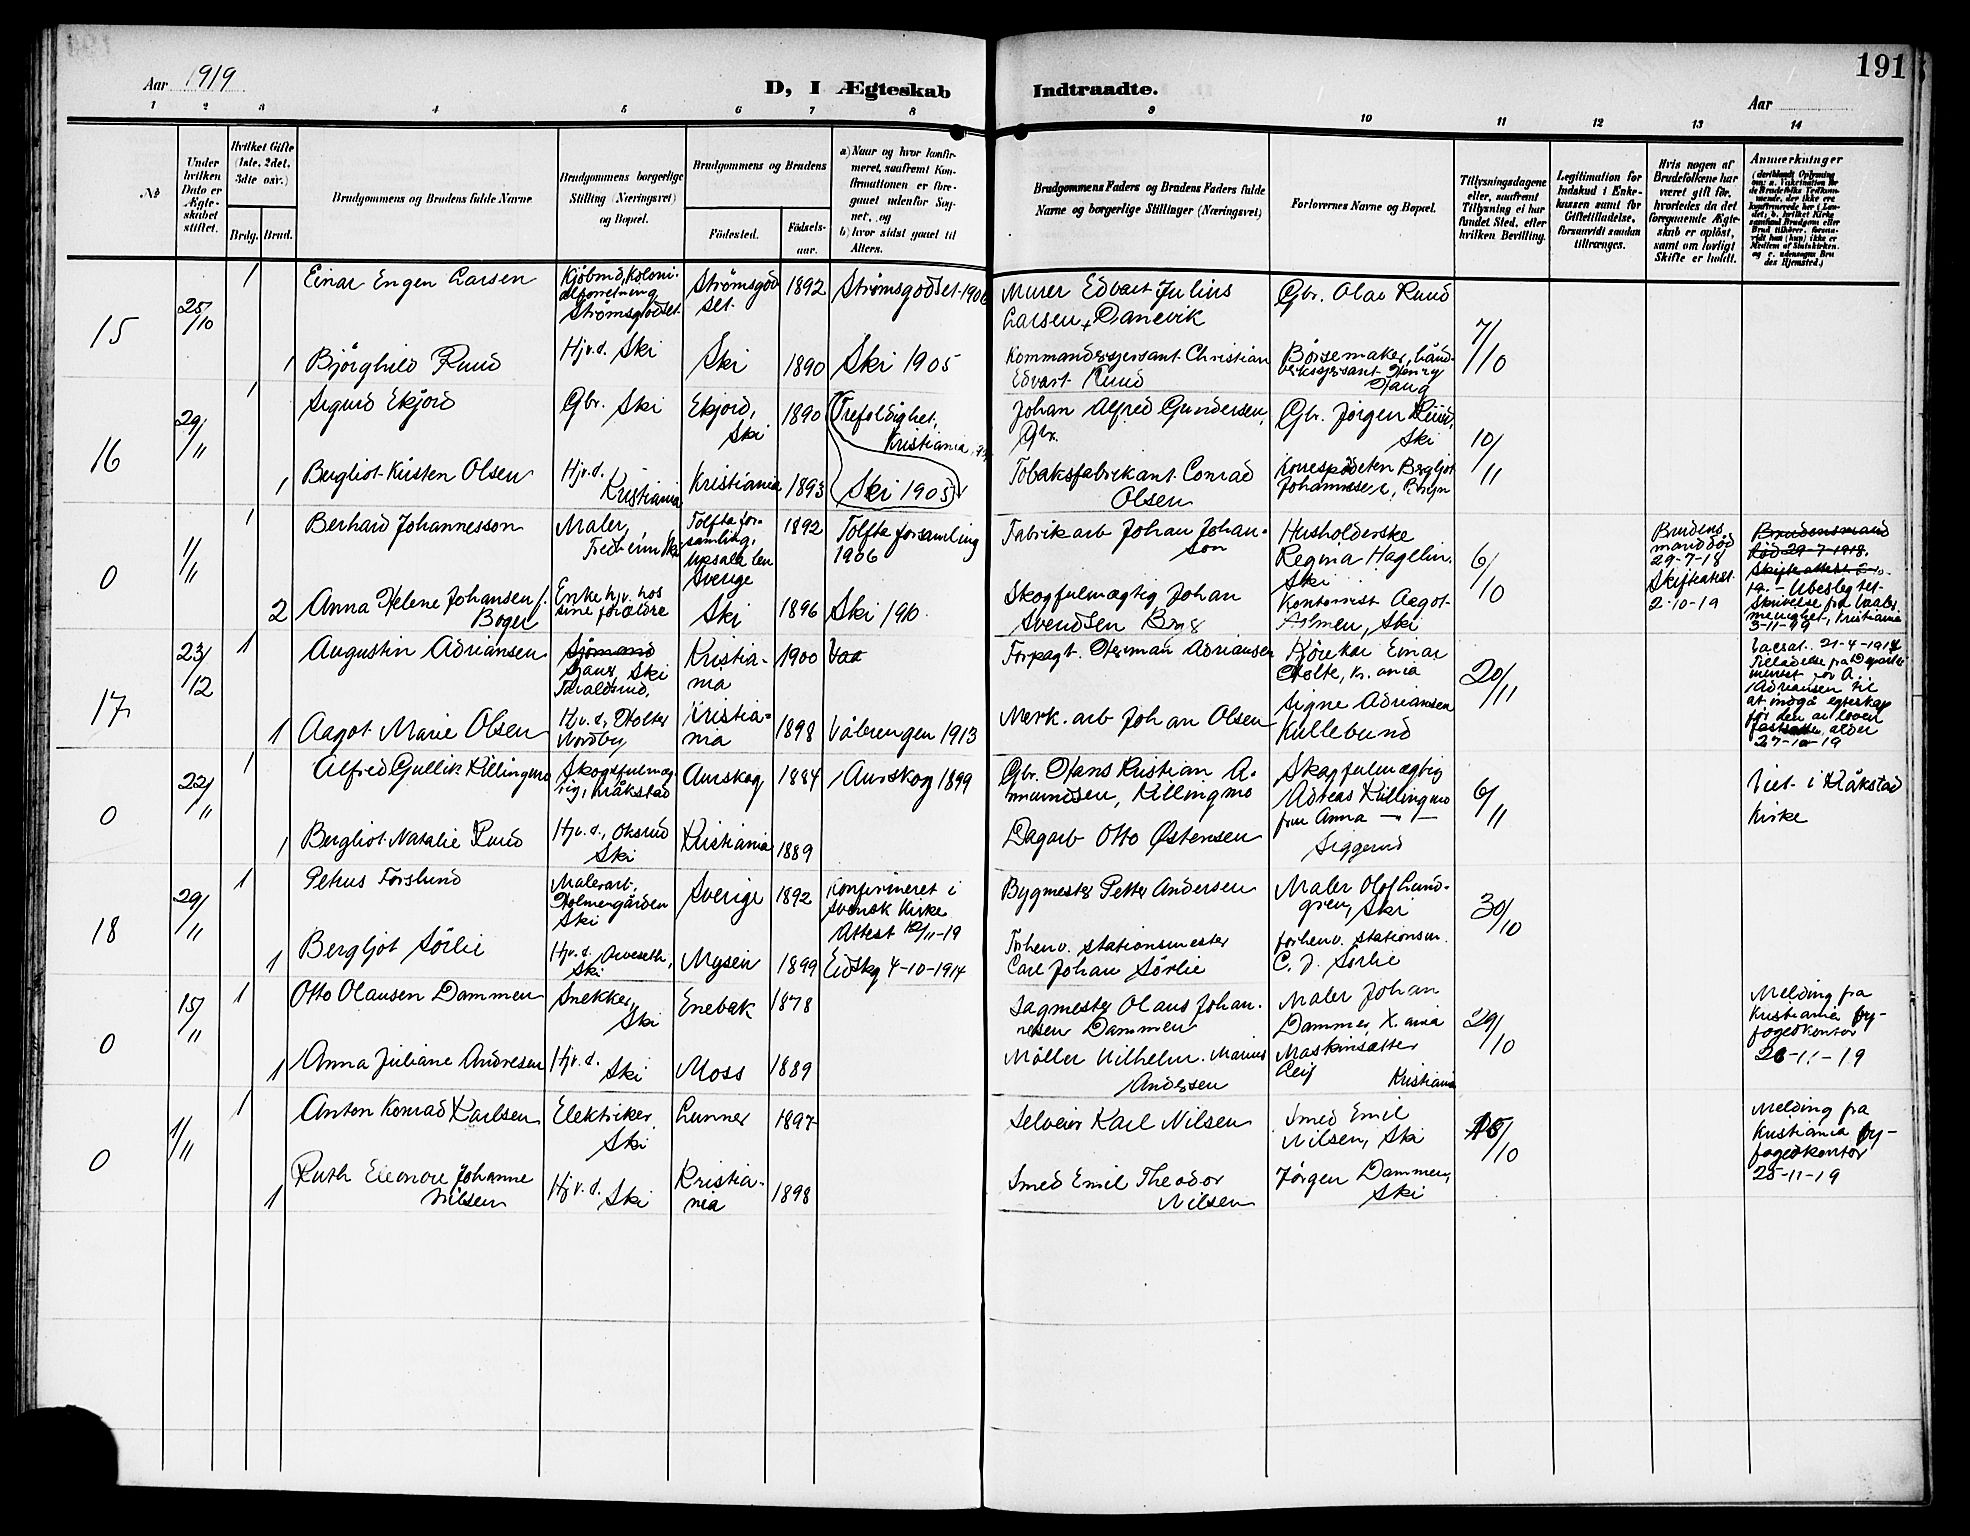 191
Aar 1919
D, I Ægteskab Indtraadte.
Aar
1 2 3 4 5 6 7 8 9 10 11 12 13 14
№
Under hvilken Dato er Ægteskabet stiftet.
Hvilket Gifte (1ste, 2det, 3dte osv.)
Brdg. Brud.
Brudgommens og Brudens fulde Navne
Brudgommens borgerlige Stilling (Næringsvei) og Bopæl.
Brudgommens og Brudens
Fødested.
Fødselsaar.
a) Naar og hvor konfirmeret, saafremt Konfirmationen er foregaaet udenfor Sognet, og
b) hvor sidst gaaet til Alters.
Brudgommens Faders og Brudens Faders fulde Navne og borgerlige Stillinger (Næringsvei)
Forlovernes Navne og Bopæl.
Tillysningsdagene eller, saafremt Tillysning ei har fundet Sted, efter hvilken Bevilling.
Legitimation for Indskud i Enkekassen samt for Giftetilladelse, forsaavidt saadan tiltrænges.
Hvis nogen af Brudefolkene har været gift før, hvorledes da det foregaaende Ægteskab er opløst, samt om lovligt Skifte er holdt.
Anmærkninger
15
25/10
1
Einar Engen Larsen
Kjøbmd, Kolonialforretning
Strømsgodset
Strømsgodset.
1892
Strømsgodset 1906
Murer Edvart Julius
Larsen, Danevik
Gbr. Olav Ruud
7/10
1
Bjørghild Ruud
Hjv.d. Ski
Ski
1890
Ski 1905
Kommandersersant Christian
Edvart Ruud
Børsemaker, håndverkssersant Henry
Haug
16
29/11
1
Sigurd Ekjord
Gbr. Ski
Ekjord,
Ski
1890
Trefoldighet,
Kristiania
Johan Alfred Gundersen,
Gbr.
Gbr. Jørgen Ruud,
Ski
10/11
1
Bergliot Kristen Olsen
Hjv.d.
Kristiania
Kristiania
1893
Ski 1905
Tobaksfabrikant Conrad
Olsen
Bergljot
Johannesen,
0
1/11
1
Berhard Johannesson
Maler,
Fredheim Ski
Tolfta forsamling,
Upsala len
Sverige
1892
Tolfta forsamling
1906
Fabrikarb Johan Johanson
Husholderske
Regina Hagelin.
Ski
6/10
Brudens
mand død
29-7-18
Skifteattest
2-10-19
Brudensmand
død 29-7-1918.
Skifteattest
2
Anna Helene Johansen f.
Boger
Enke hjv. hos
sine forældre
Ski
1896
Ski 1910.
Skogfulmægtig Johan
Svendsen
Kontorist Aagot
Almen, Ski
3-11-19, Kristiania
17
23/12
1
Augustin Adriansen
Sjømand
Ski
Kristiania
1900
Vaa
Forpagt. Herman Adriansen
Kjørekar Einar
Holte, Kr.ania
20/11
21-4-1914
Tilladelse fra Departementet for A.
Adriansen til
at indgå egteskap
før den av loven
fastsatte alder
27-10-19
1
Aagot Marie Olsen
Hjv.d, Holter
Nordby
Kristiania
1898
Vålerengen 1913
Merk. arb Johan Olsen
Signe Adriansen
Kullebund
0
22/11
1
Alfred Gullik Killingmo
Skogsfulmægtig, Kråkstad
Aurskog
1884
Aurskog 1899
Gbr. Hans Kristian Amundsen, Killingmo
Skogfulmægtig
Killingmo
fru Anna — " —
6/11
Viet i Kråkstad
Kirke
1
Bergliot Natalie Ruud
Hjv.d., Oksrud
Ski
Kristiania
1889
Dagarb Otto Østensen
Siggerud
18
29/11
1
Petrus Forslund
Malerarb,
Holmengården
Ski
Sverige
1892
Konfirmeret i
svensk Kirke
Attest 12/11-19
Bygmester Petter Andersen
Maler Olof Lundgren, Ski
30/10
1
Bergljot Sørlie
Hjv.d.
Ski
Mysen
1899
Eidskg 4-10-1914
Forhenv. stationsmester
Carl Johan Sørlie
forhenv. stationsm.
C. J. Sørlie
0
15/11
1
Otto Olausen Dammen
Snekker,
Ski
Enebak
1878
Sagmester Olaus Johannesen Dammen
Maler Johan
Dammen, K.ania
29/10
Melding fra
Kristiania byfogedkontor
26-11-19
1
Anna Juliane Andresen
Hjv.d.
Ski
Moss
1889
Møller Vilhelm Marius
Andersen
Maskinsætter
Leif Kristiania
0
1/11
1
Anton Konrad Karlsen
Elektriker
Ski
Lunner
1897
Selveier Karl Nilsen
Smed Emil
Nilsen, Ski
/10
Melding fra
Kristiania byfogedkontor
25-11-19
1
Ruth Eleonore Johanne
Nilsen
Hjv.d.
Ski
Kristiania
1898
Smed Emil Theodor
Nilsen
Jørgen Dammen,
Ski